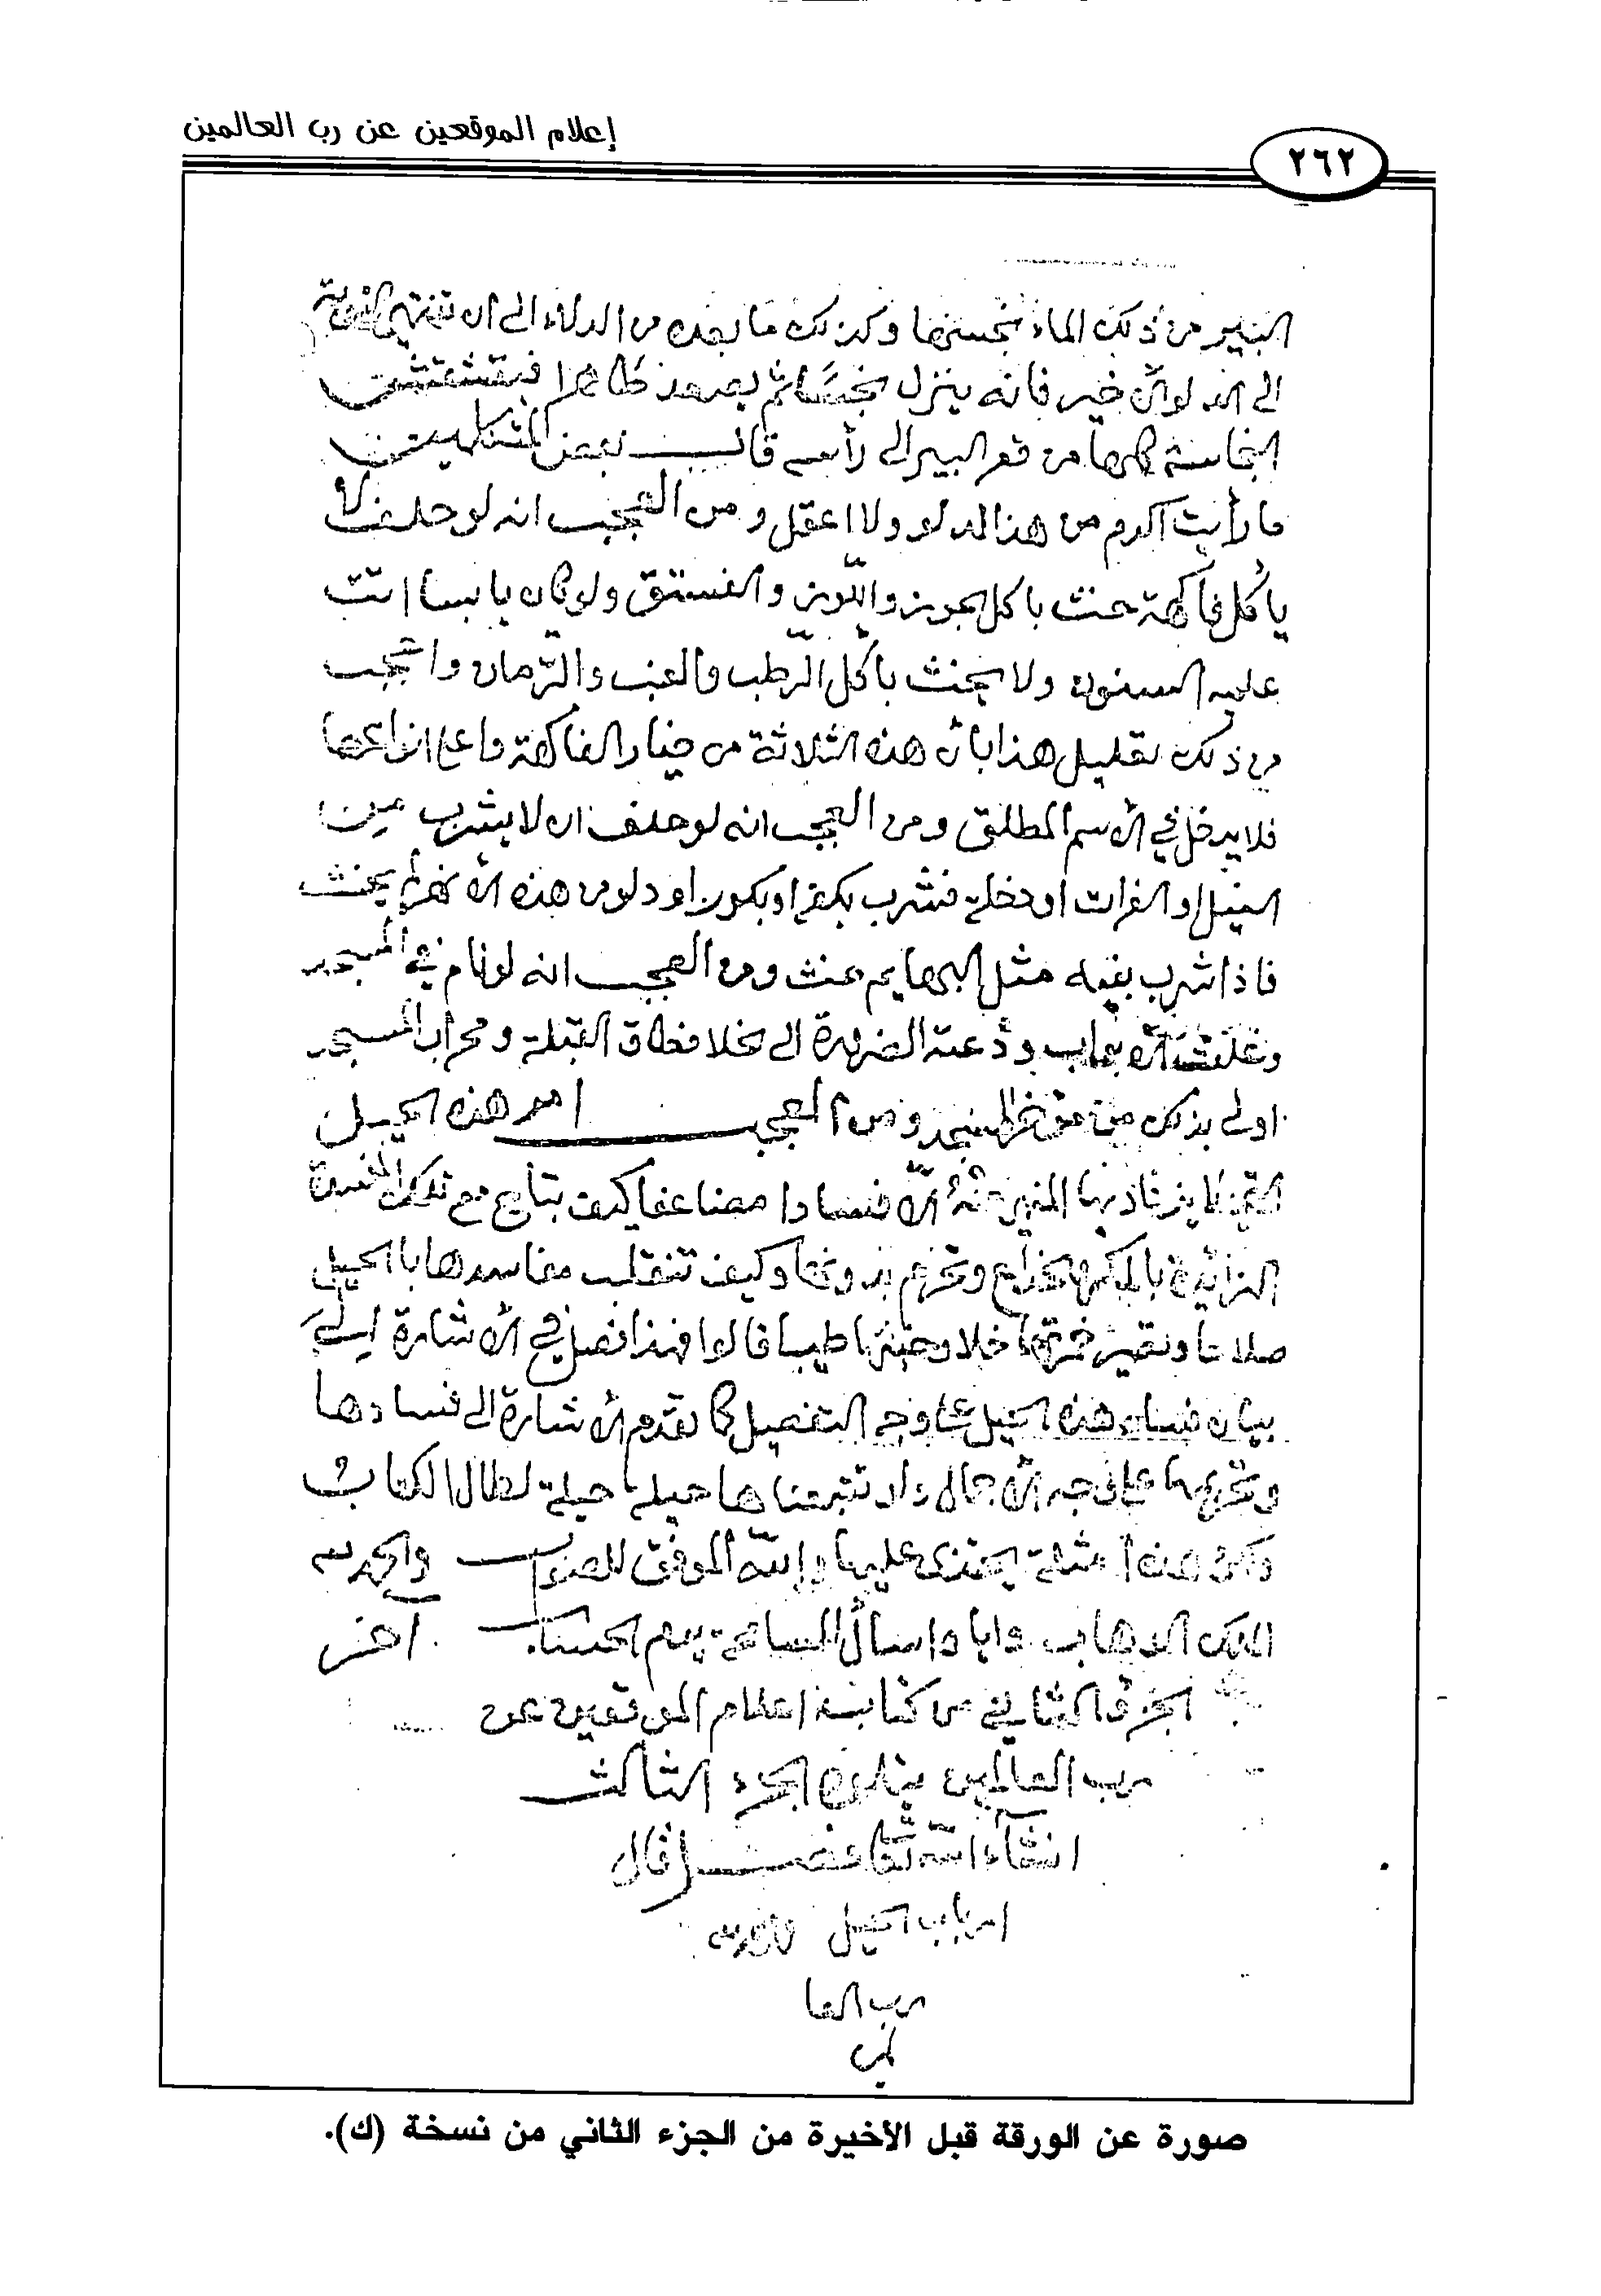 إعلام الموقعين عن رب العالمين
٢٦٢
البير من ذلك الماء نجسها وكذلك ما بعده من الدلاء الى ان تنتهي النوبة
الى الدلو الاخير فانه ينزل نجسا ثم يصعد طاهرا فيقشقش
النجاسة كلها من قعر البير الى رأسه قال بعض المتكلمين
ما رأيت اكرم من هذا الدلو ولا اعقل ومن العجب انه لو حلف لا
ياكل فاكهة حنث باكل الجوز واللوز والفستق ولو كان يابسا اتت
عليه السنون ولا يحنث بأكل الرطب والعنب والرمان واعجب
من ذلك تعليل هذا بان هذه الثلاثة من خيار الفاكهة واعلا انواعها
فلا يدخل في الاسم المطلق ومن العجب انه لو حلف ان لا يشرب من
النيل او الفرات او دخلة فشرب بكفه او بكوز او دلو من هذه الانهر لم يحنث
فاذا شرب بفيه مثل البهايم حنث ومن العجب انه لو نام في المسجد
وغلقت الابواب ودعته الضرورة الى الخلا فطاق القبلة ومحراب المسجد
اولى بذلك من مؤخر المسجد ومن العجب امر هذه الحيل
التي لا يزداد بها المنهي عنه الا فسادا مضاعفا كيف يتاح مع تلك المفسدة
الزائدة بالمكر والخداع وتحرم بدونها وكيف تنقلب مفاسدها بالحيل
صلاحا وتصير خمرتها خلا وخبثها طيبا قالوا فهذا فصل في الاشارة الى
بيان فساد هذه الحيل على وجه التفصيل كما تقدم الاشارة الى فسادها
وتحريمها على وجه الاجمال ولو تتبعناها حيلة حيلة لطال الكتاب
ولكن هذه امثلة يحتذى عليها والله الموفق للصواب والحمد لله
الملك الوهاب واياه اسأل المسامحة يوم الحساب. اخر
الجزء الثاني من كتاب اعلام الموقعين عن
رب العالمين يتلوه الجزء الثالث
انشاء الله تعالى فصل قال
ارباب الحيل
رب العا
لمين
صورة عن الورقة قبل الأخيرة من الجزء الثاني من نسخة (ك).